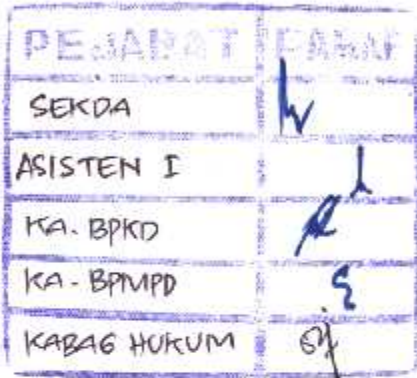 PEJABAT PARAF
SEKDA
ASISTEN I
KA. BPKD
KA - BPMPD
KABAG HUKUM